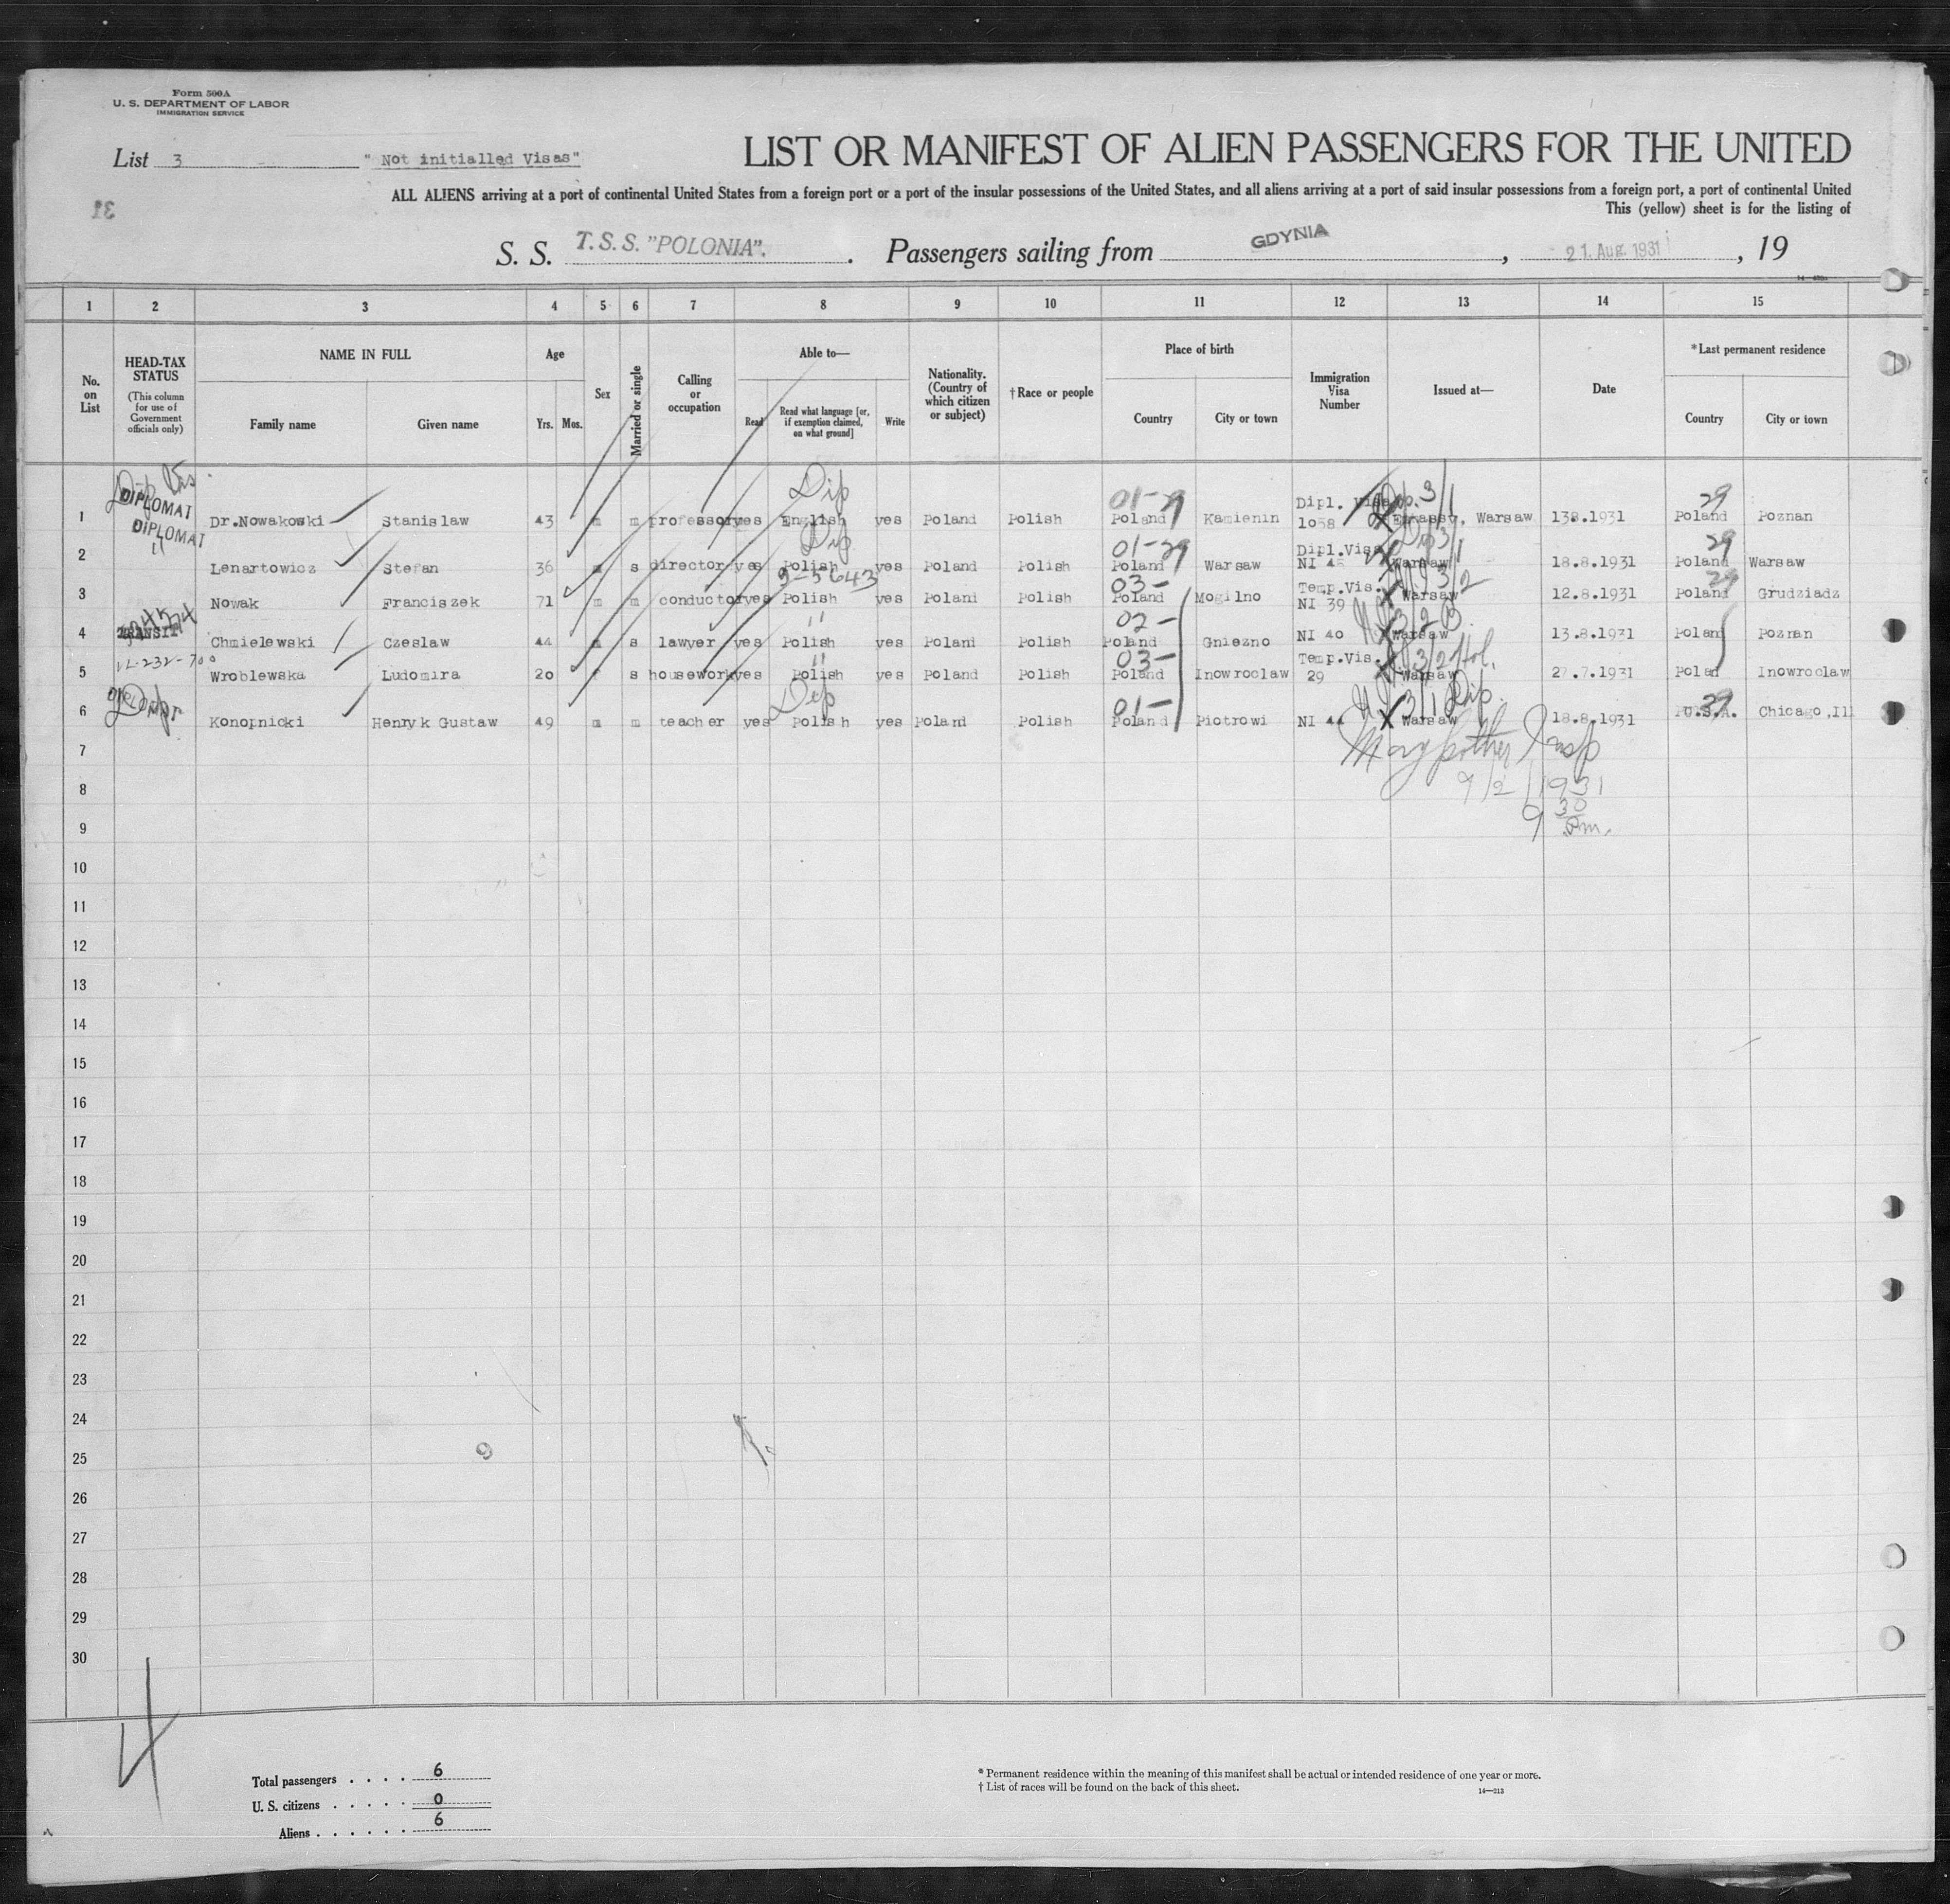 Form 500A
U. S. DEPARTMENT OF LABOR
IMMIGRATION SERVICE
List 3 " Not initialled Visas"
LIST OR MANIFEST OF ALIEN PASSENGERS FOR THE UNITED
ALL ALIENS arriving at a port of continental United States from a foreign port or a port of the insular possessions of the United States, and all aliens arriving at a port of said insular possessions from a foreign port, a port of continental United
This (yellow) sheet is for the listing of
31
S. S. T. S. S. "POLONIA". Passengers sailing from GDYNIA, 21. Aug. 1931, 19
1 2 3 4 5 6 7 8 9 10 11 12 13 14 15
No. on List
HEAD-TAX STATUS
(This column for use of Government officials only)
NAME IN FULL
Family name Given name
Age
Yrs. Mos.
Sex
Married or single
Calling or occupation
Able to—
Read
Read what language [or, if exemption claimed, on what ground]
Write
Nationality. (Country of which citizen or subject)
†Race or people
Place of birth
Country City or town
Immigration Visa Number
Issued at—
Date
*Last permanent residence
Country City or town
Dip
DIPLOMAT
Dip 01-29 Dipl. Visa 29
1 Dr.Nowakowski Stanislaw 43 m m professor yes English yes Poland Polish Poland Kamienin 1058 Embassy, Warsaw 138.1931 Poland Poznan
DIPLOMAT
Dip 01-29 Dipl.Visa 29
2 " Lenartowicz Stefan 36 m s director yes Polish yes Poland Polish Poland Warsaw NI 45 Warsaw 18.8.1931 Poland Warsaw
9-5643 03- Temp.Vis. 29
3 Nowak Franciszek 71 m m conductor yes Polish yes Poland Polish Poland Mogilno NI 39 Warsaw 12.8.1931 Poland Grudziadz
TRANSIT " 02-
4 Chmielewski Czeslaw 44 m s lawyer yes Polish yes Poland Polish Poland Gniezno NI 40 Warsaw 13.8.1931 Poland Poznan
" 03- Temp.Vis.
5 Wroblewska Ludomira 20 f s housework yes Polish yes Poland Polish Poland Inowroclaw 29 Warsaw 27.7.1931 Poland Inowroclaw
Dip 01- Dip. 29
6 Konopnicki Henryk Gustaw 49 m m teacher yes Polish yes Poland Polish Poland Piotrowi NI 44 Warsaw 18.8.1931 U.S.A. Chicago,Ill
7
9/2/1931
8
9 30
9 Pm.
10
11
12
13
14
15
16
17
18
19
20
21
22
23
24
25
26
27
28
29
30
4
Total passengers . . . . 6
U. S. citizens . . . . . 0
Aliens . . . . . . 6
* Permanent residence within the meaning of this manifest shall be actual or intended residence of one year or more.
† List of races will be found on the back of this sheet.
14—213